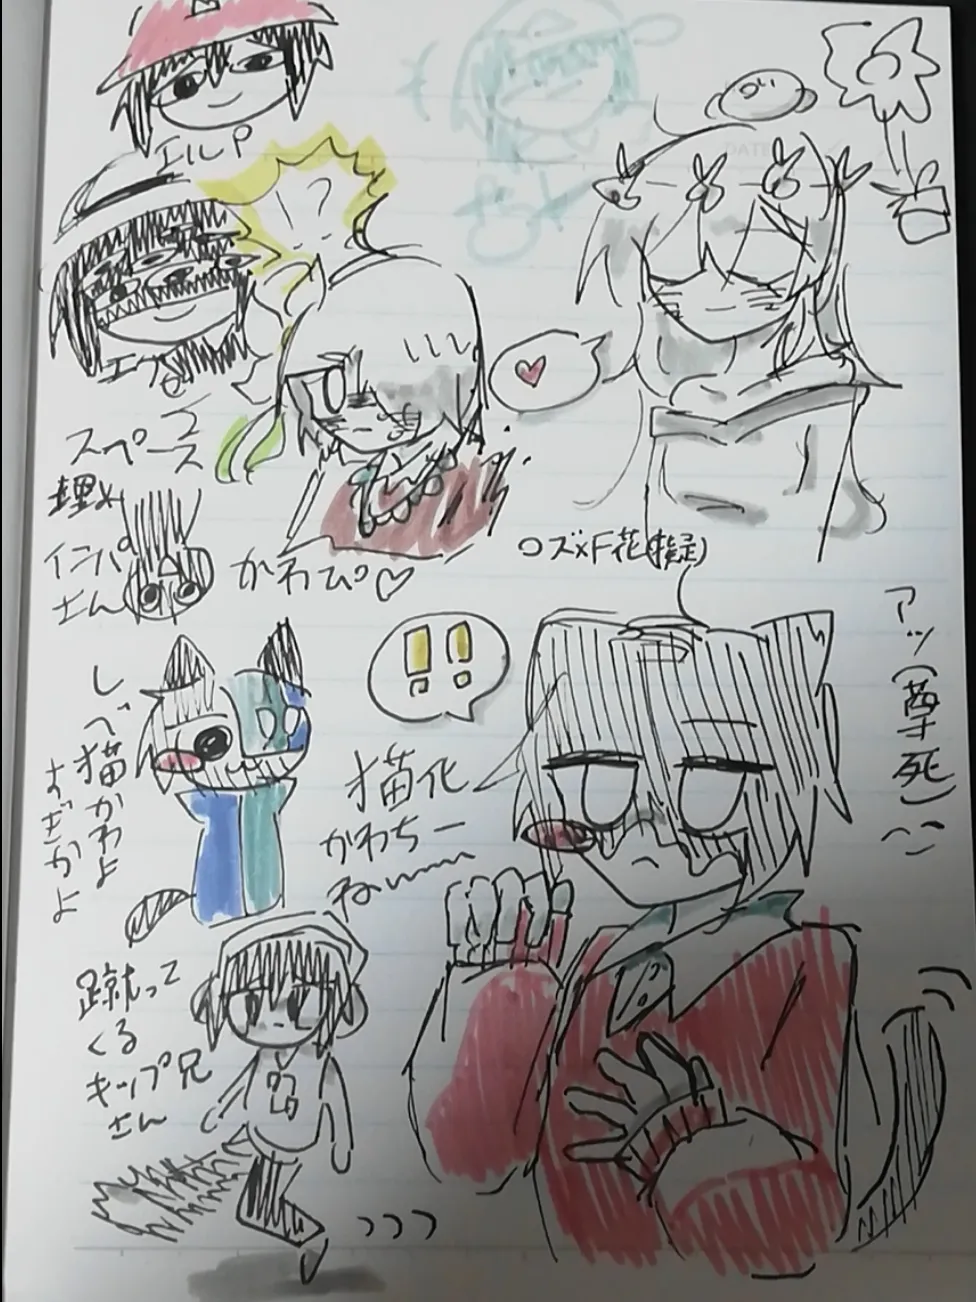 DATE
エルP
?
スペース
埋め
インパ
さん
かわぴ♡
ロズ×F花(擬)
!!
アッ(尊死)
しべ猫かわよ
すぎかよ
猫化
かわちー
ねぃー
蹴って
くる
キップ兄
さん